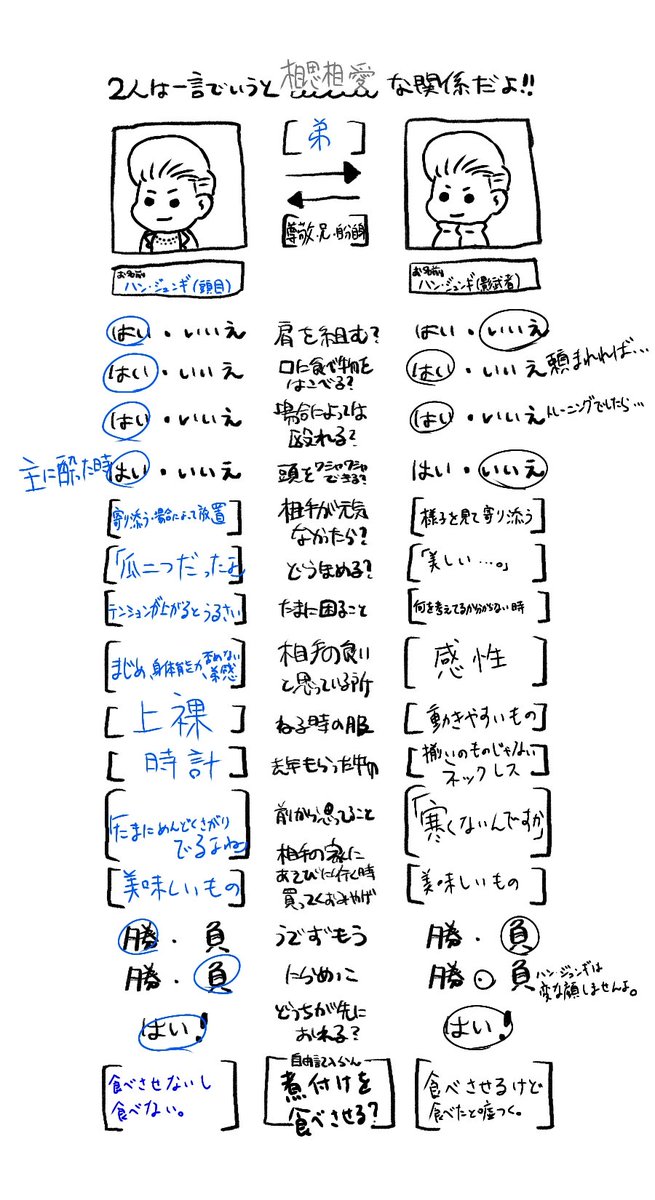 2人は一言でいうと相思相愛な関係だよ!!
[弟]
[尊敬・兄・自分自身]
お名前 ハン・ジュンギ(頭目)
お名前 ハン・ジュンギ(影武者)
はい・いいえ 肩を組む? はい・いいえ
はい・いいえ 口に食べ物をはこべる? はい・いいえ 頼まれれば…
はい・いいえ 場合によっては殴れる? はい・いいえ トレーニングでしたら…
主に酔った時 はい・いいえ 頭をワシャワシャできる? はい・いいえ
[寄り添う・場合によって放置] 相手が元気なかったら? [様子を見て寄り添う]
[「瓜二つだったよ」] どうほめる? [「美しい…。」]
[テンションが上がるとうるさい] たまに困ること [何を考えてるか分からない時]
[まじめ、身体能力、否めない弟感] 相手の良いと思っている所 [感性]
[上裸] ねる時の服 [動きやすいもの]
[時計] 去年もらった物 [揃いのものじゃないネックレス]
[「たまにめんどくさがりでるよね」] 前から思ってること [「寒くないんですか」]
[美味しいもの] 相手の家にあそびに行く時買ってくおみやげ [美味しいもの]
勝・負 うでずもう 勝・負
勝・負 にらめっこ 勝・負 ハン・ジュンギは変な顔しませんよ。
はい! どっちが先におれる? はい!
[食べさせないし食べない。] 自由記入らん 煮付けを食べさせる? [食べさせるけど食べたと嘘つく。]